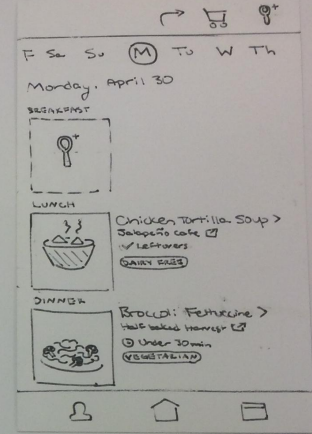 F Sa Su M Tu W Th
Monday, April 30
BREAKFAST
LUNCH
Chicken Tortilla Soup >
Jalapeño Cafe
✓ Leftovers
DAIRY FREE
DINNER
Broccoli Fettuccine >
Half Baked Harvest
Under 30 min
VEGETARIAN